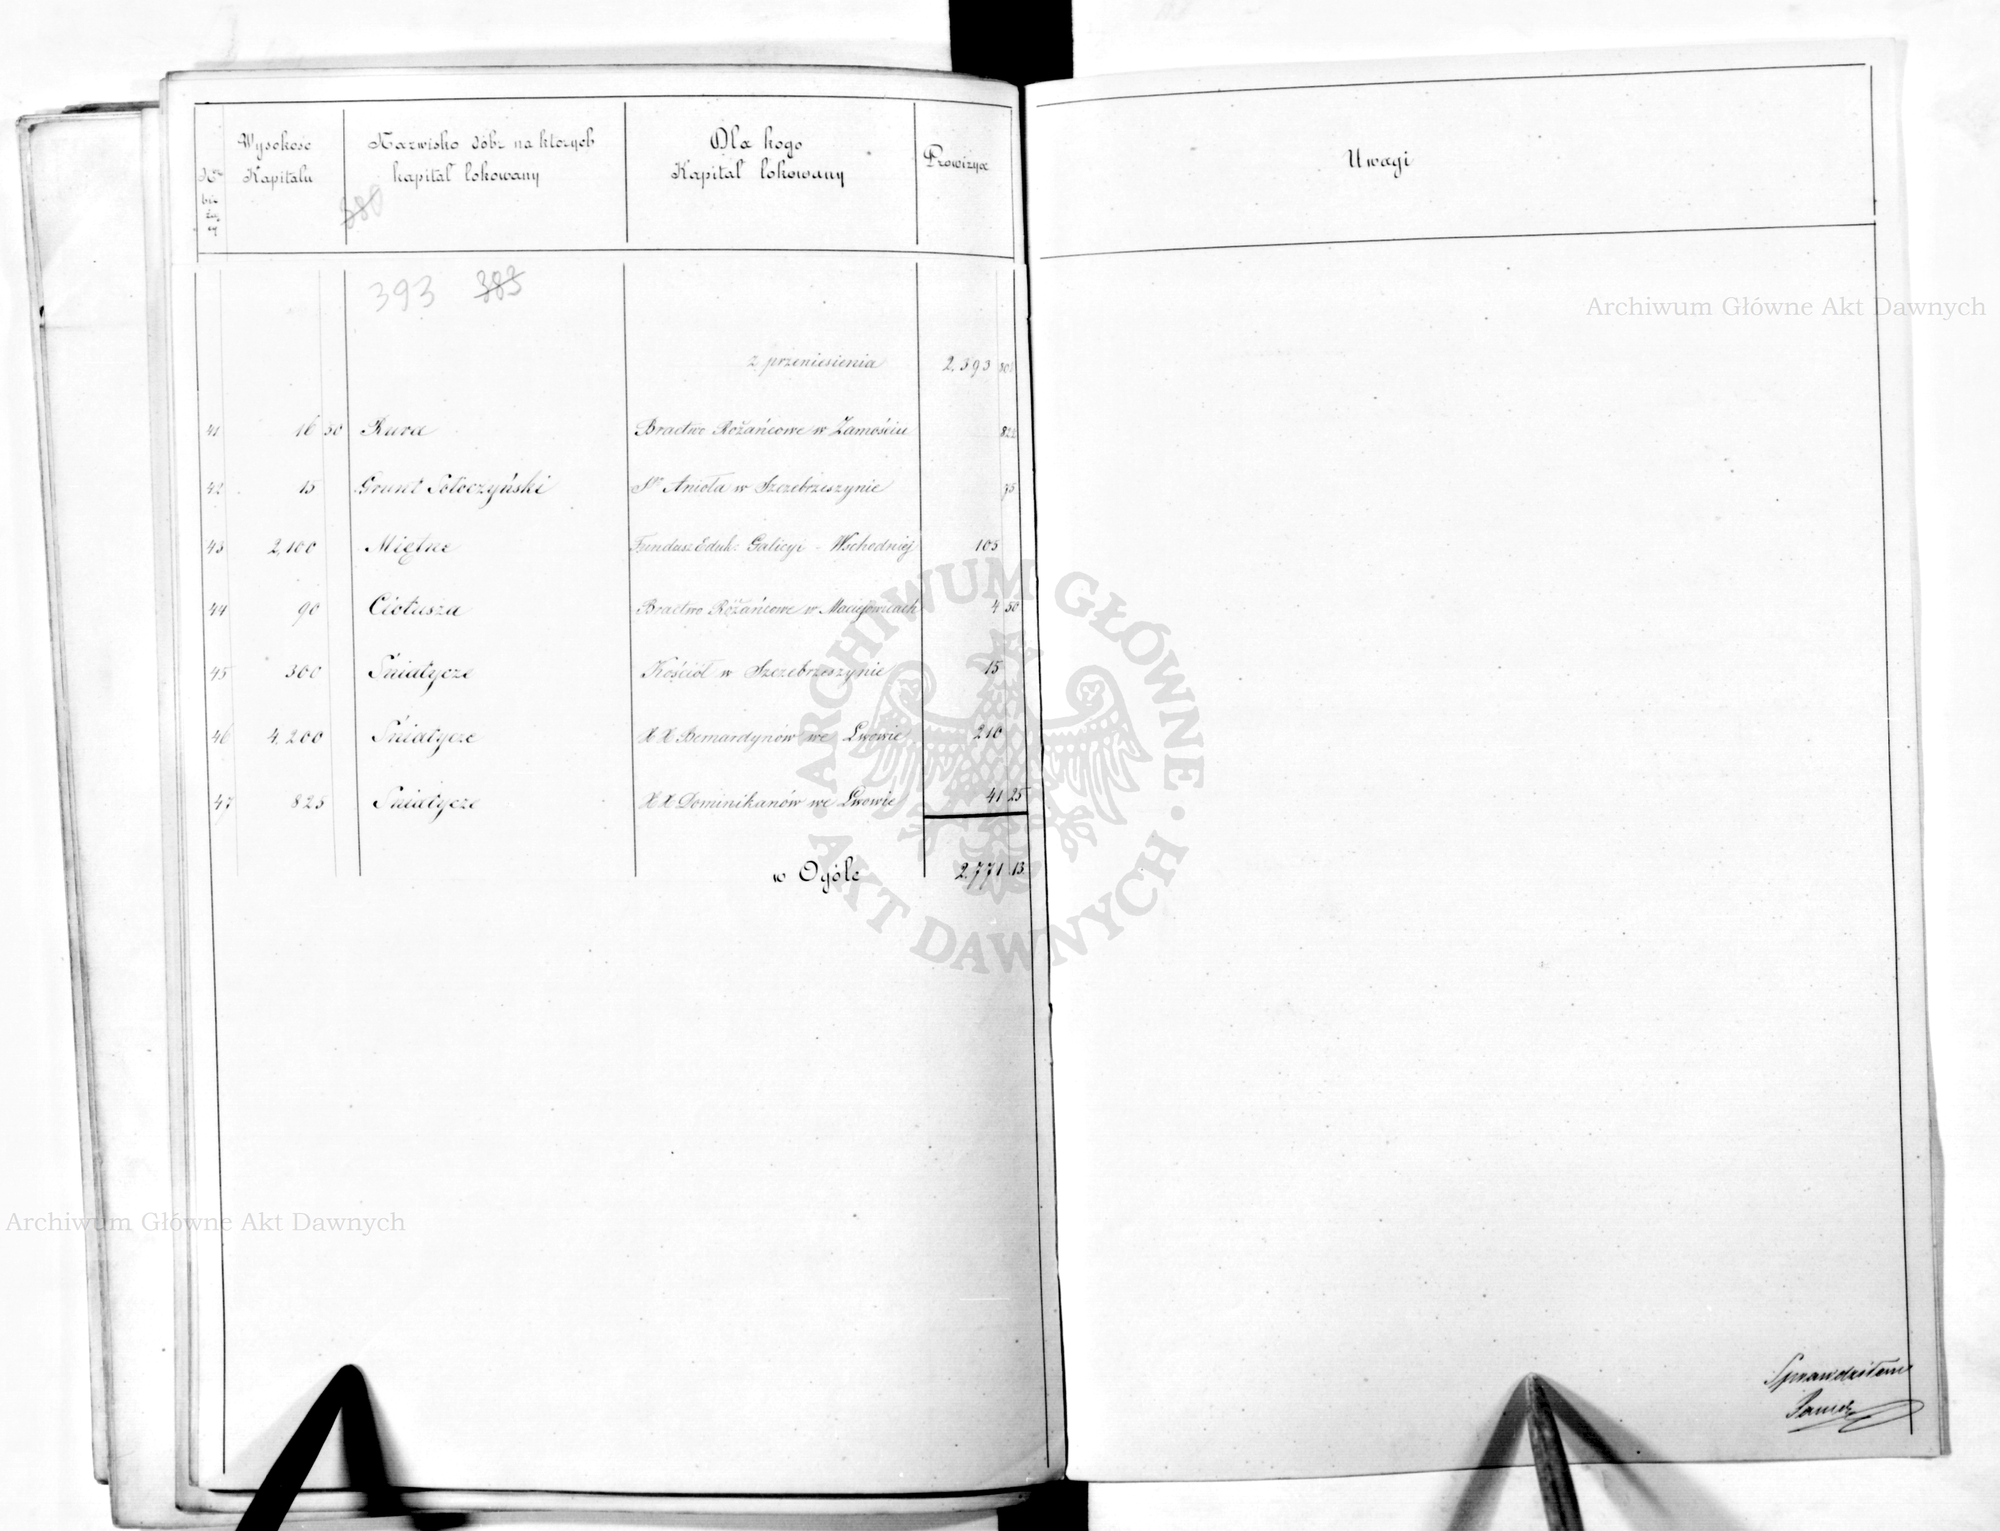 Nr bieżący
Wysokość Kapitału
Nazwisko dóbr na których kapitał lokowany
Dla kogo Kapitał lokowany
Prowizya
Uwagi
380
393 383
z przeniesienia 2,393
41 16 50 Rura Bractwo Różańcowe w Zamościu 82½
42 15 Grunt Sołoczyński Sgo Anioła w Szczebrzeszynie 75
43 2,100 Miętne Fundusz Eduk: Galicyi - Wschodniej 105
44 90 Ciotusza Bractwo Różańcowe w Maciejowicach 4 50
45 300 Śniatycze Kościół w Szczebrzeszynie 15
46 4,200 Śniatycze XX Bernardynów we Lwowie 210
47 825 Śniatycze XX Dominikanów we Lwowie 41 25
w Ogóle 2,771 13
Sprawdziłem
Archiwum Główne Akt Dawnych
Archiwum Główne Akt Dawnych
ARCHIWUM GŁÓWNE · AKT DAWNYCH ·